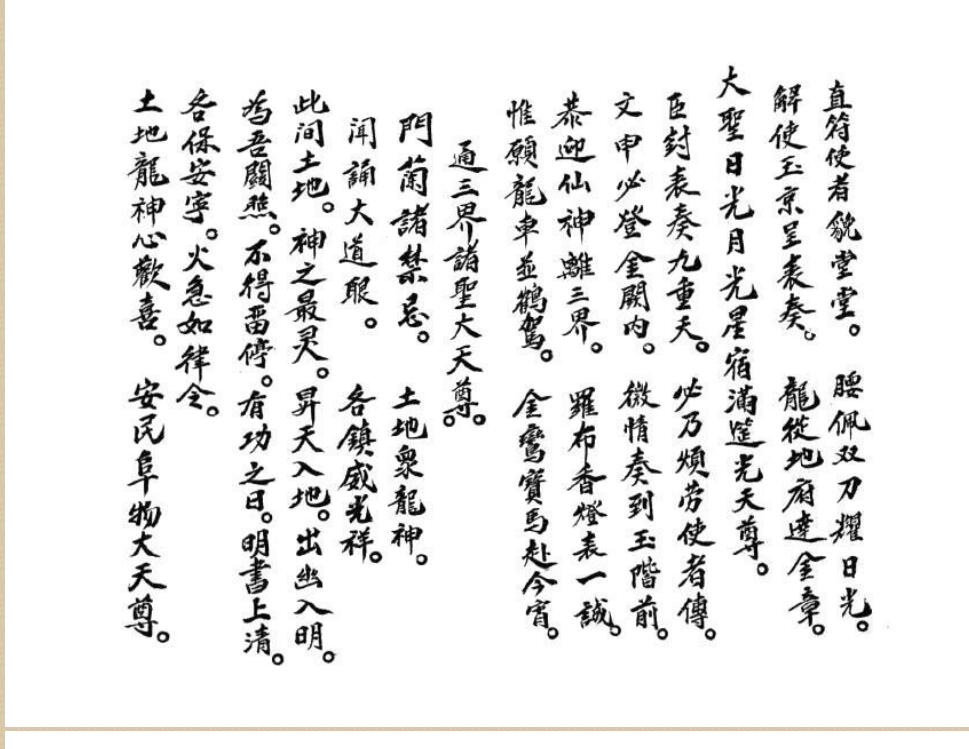 直符使者貌堂堂。 腰佩双刀耀日光。
解使玉京呈表奏。 龍從地府達金章。
大聖日光月光星宿滿筵光天尊。
臣封表奏九重天。 必乃煩劳使者傳。
文申必登金闕內。 微情奏到玉階前。
恭迎仙神離三界。 羅布香燈表一誠。
惟願龍車並鶴駕。 金鸞寶馬赴今宵。
通三界諸聖大天尊。
門蘭諸禁忌。 土地衆龍神。
闻誦大道眼。 各鎮威光祥。
此间土地。神之最灵。昇天入地。出幽入明。
為吾關照。不得畱停。有功之日。明書上清。
各保安寧。火急如律令。
土地龍神心歡喜。 安民阜物大天尊。